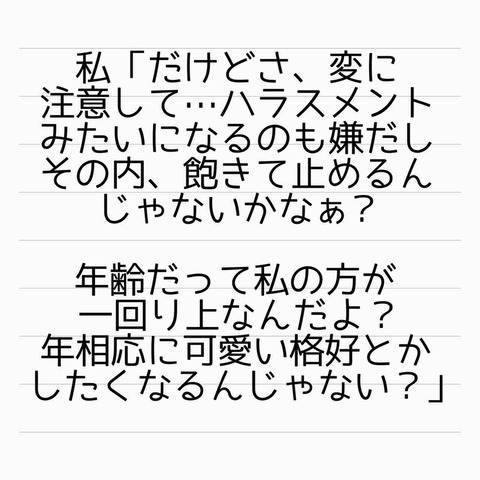 私「だけどさ、変に
注意して…ハラスメント
みたいになるのも嫌だし
その内、飽きて止めるん
じゃないかなぁ？
年齢だって私の方が
一回り上なんだよ？
年相応に可愛い格好とか
したくなるんじゃない？」